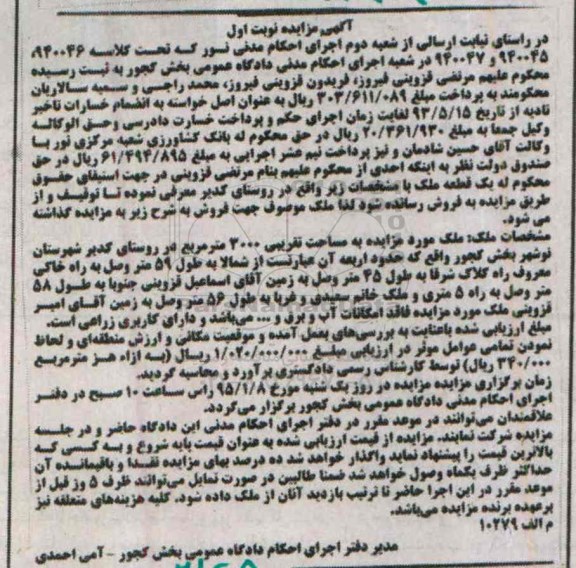 آگهی مزایده نوبت اول
در راستای نیابت ارسالی از شعبه دوم اجرای احکام مدنی نور که تحت کلاسه ۹۴۰۰۴۶،
۹۴۰۰۴۵ و ۹۴۰۰۴۷ در شعبه اجرای احکام مدنی دادگاه عمومی بخش کجور به ثبت رسیده
محکوم علیهم مرتضی قزوینی فیروز، فریدون قزوینی فیروز، محمد راجی و سمیه سالاریان
محکومند به پرداخت مبلغ ۳۰۳/۶۱۱/۰۸۹ ریال به عنوان اصل خواسته به انضمام خسارات تاخیر
تادیه از تاریخ ۹۳/۵/۱۵ لغایت زمان اجرای حکم و پرداخت خسارت دادرسی وحق الوکاله
وکیل جمعا به مبلغ ۲۰/۳۶۱/۹۳۰ ریال در حق محکوم له بانک کشاورزی شعبه مرکزی نور با
وکالت آقای حسین شادمان و نیز پرداخت نیم عشر اجرایی به مبلغ ۶۱/۴۹۴/۸۹۵ ریال در حق
صندوق دولت نظر به اینکه احدی از محکوم علیهم بنام مرتضی قزوینی در جهت استیفای حقوق
محکوم له یک قطعه ملک با مشخصات زیر واقع در روستای کدیر معرفی نموده تا توقیف و از
طریق مزایده به فروش رسانده شود لذا ملک موصوف جهت فروش به شرح زیر به مزایده گذاشته
می شود.
مشخصات ملک: ملک مورد مزایده به مساحت تقریبی ۳۰۰۰ مترمربع در روستای کدیر شهرستان
نوشهر بخش کجور واقع که حدود اربعه آن عبارتست از شمالا به طول ۵۹ متر وصل به راه خاکی
معروف راه کلاک شرقا به طول ۴۵ متر وصل به زمین آقای اسماعیل قزوینی جنوبا به طول ۵۸
متر وصل به راه ۵ متری و ملک خانم سعیدی و غربا به طول ۵۶ متر وصل به زمین آقای امیر
قزوینی ملک مورد مزایده فاقد امکانات آب و برق و ... می‌باشد و دارای کاربری زراعی است.
مبلغ ارزیابی شده باعنایت به بررسی‌های بعمل آمده و موقعیت مکانی و ارزش منطقه‌ای و لحاظ
نمودن تمامی عوامل موثر در ارزیابی مبلغ ۱/۰۲۰/۰۰۰/۰۰۰ ریال (به ازاء هر مترمربع
۳۴۰/۰۰۰ ریال) توسط کارشناس رسمی دادگستری برآورد و محاسبه گردید.
زمان برگزاری مزایده مزایده در روز یک شنبه مورخ ۹۵/۱/۸ راس ساعت ۱۰ صبح در دفتر
اجرای احکام مدنی دادگاه عمومی بخش کجور برگزار می‌گردد.
علاقمندان می‌توانند در موعد مقرر در دفتر اجرای احکام مدنی این دادگاه حاضر و در جلسه
مزایده شرکت نمایند. مزایده از قیمت ارزیابی شده به عنوان قیمت پایه شروع و به کسی که
بالاترین قیمت را پیشنهاد نماید واگذار خواهد شد ده درصد بهای مزایده نقدا و باقیمانده آن
حداکثر ظرف یکماه وصول خواهد شد ضمنا طالبین در صورت تمایل می‌توانند ظرف ۵ وز قبل از
موعد مقرر در این اجرا حاضر تا ترتیب بازدید آنان از ملک داده شود. کلیه هزینه‌های متعلقه نیز
برعهده برنده مزایده می‌باشد.
م الف ۱۰۲۷۹
مدیر دفتر اجرای احکام دادگاه عمومی بخش کجور - آمی احمدی